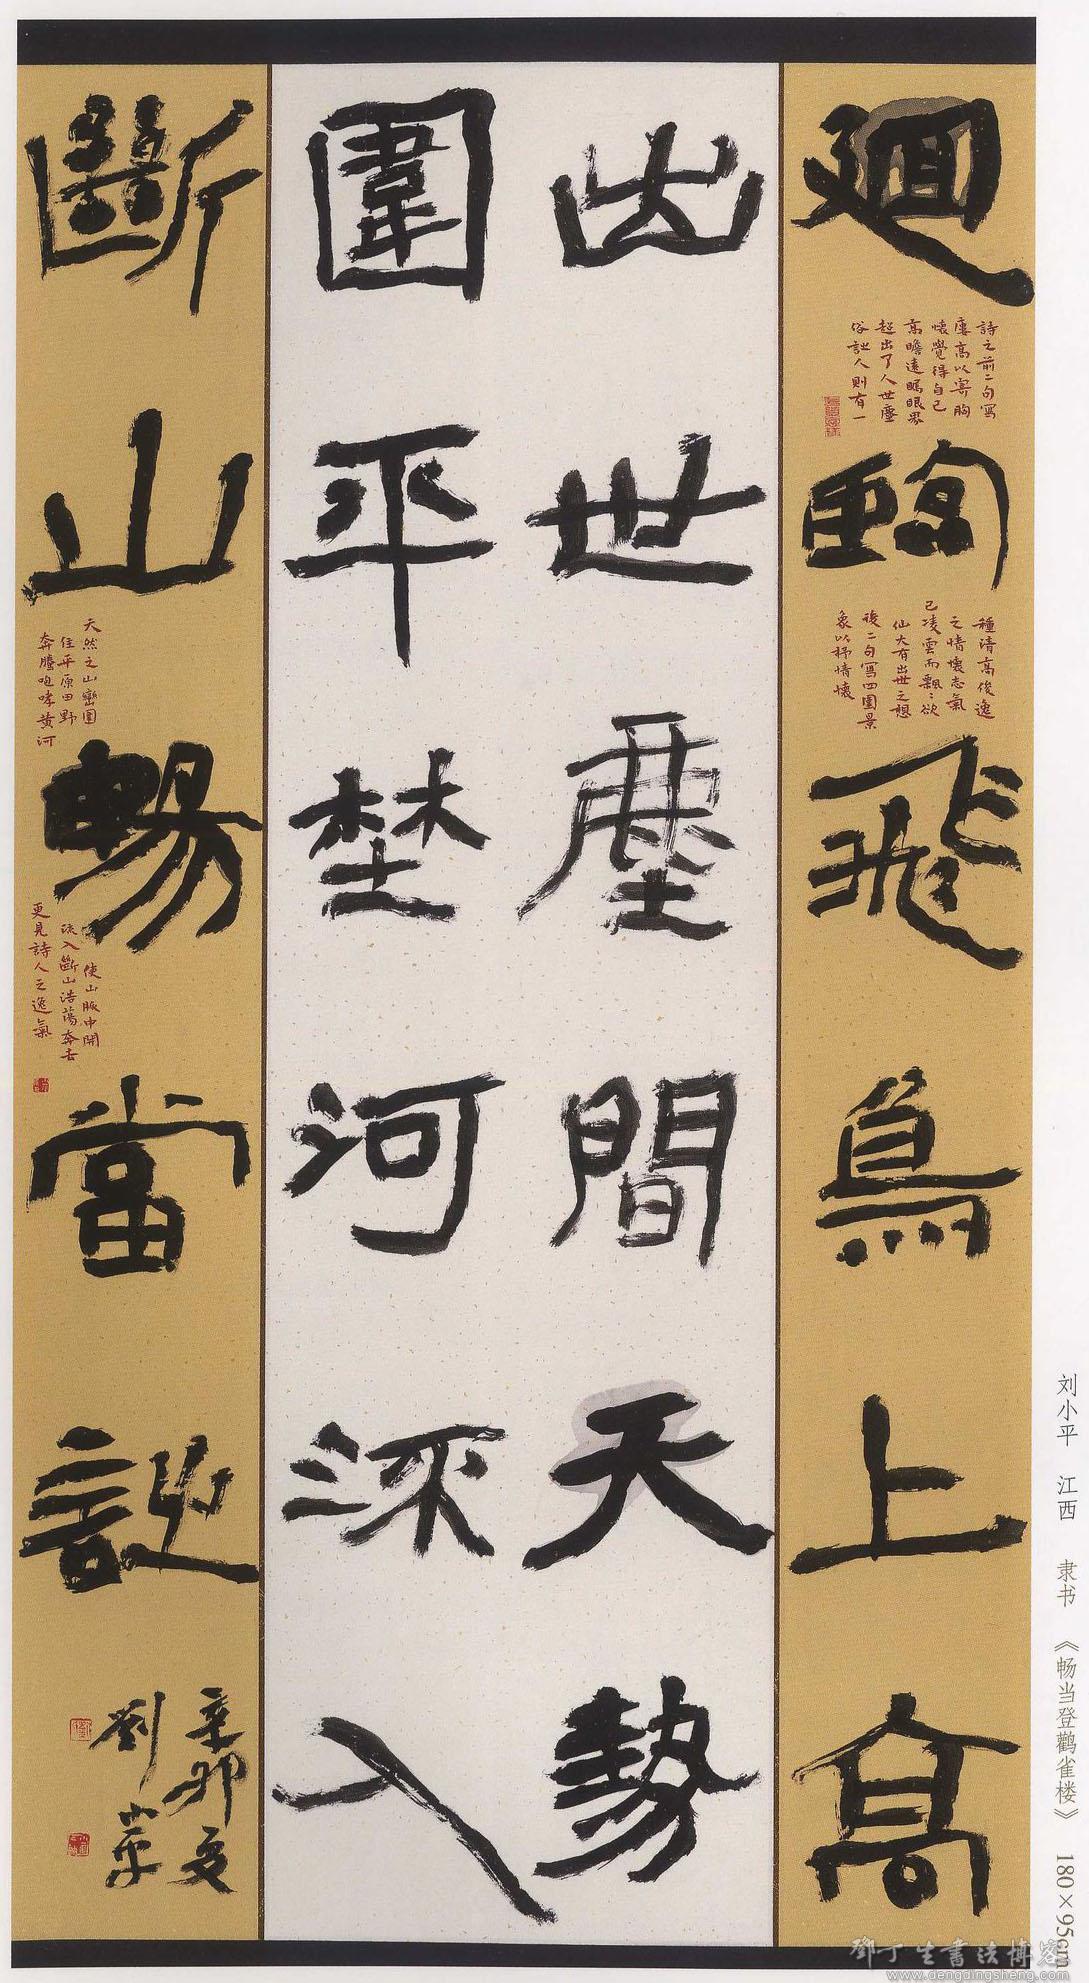 廻臨飛鳥上高
出世塵間天勢
圍平埜河流入
斷山暢當詩
辛卯夏
劉小平
詩之前二句寫
廔高以寄胸
懷覺得自己
高瞻遠矚眼界
超出了人世塵
俗詩人則有一
種清高俊逸
之情懷志氣
已凌雲而飄〻欲
仙大有出世之想
後二句寫四圍景
象以抒情懷
天然之山巒圍
住平原田野
奔騰咆哮黄河
使山脈中開
流入斷山浩蕩奔去
更見詩人之逸氣
刘小平 江西 隶书 《畅当登鹳雀楼》 180×95cm
鄧丁生書法博客
www.dengdingsheng.com